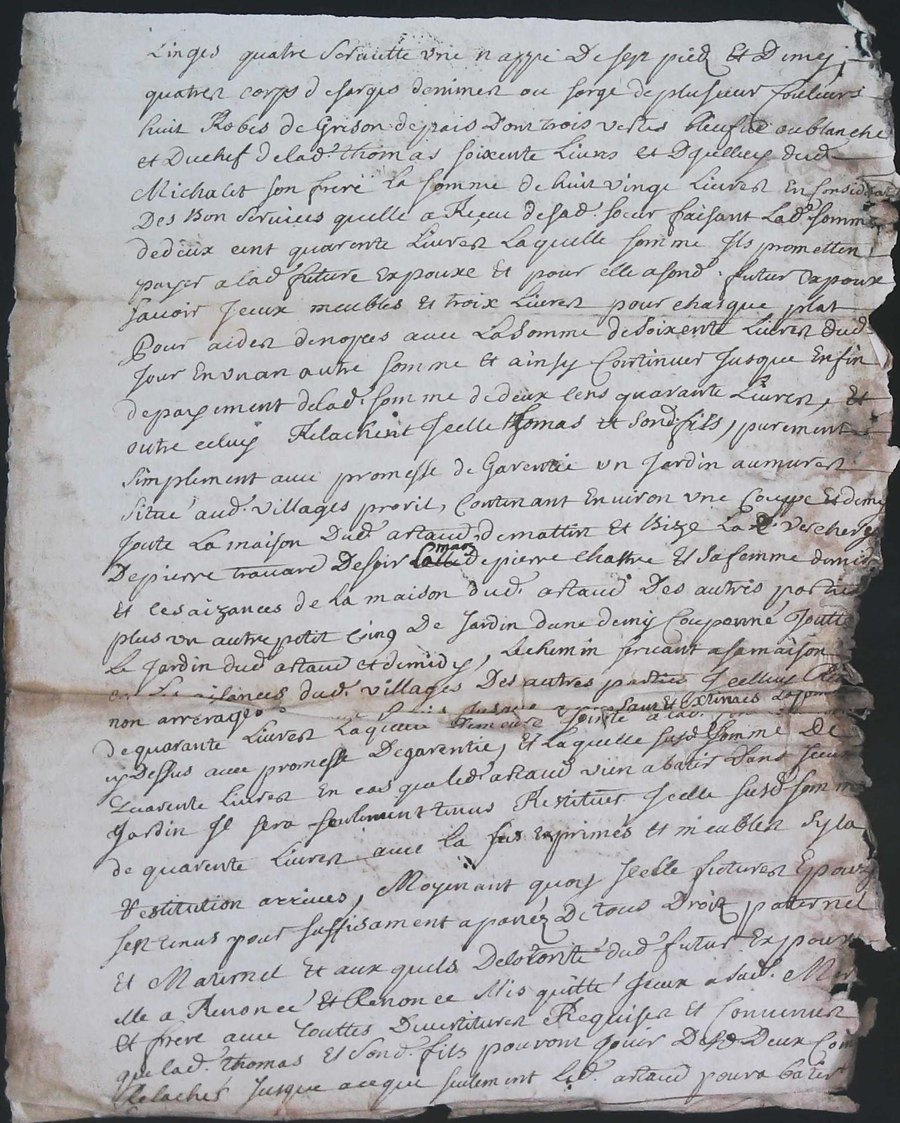 Linges quatre serviette une nappe de sept pied et demy,
quatres corps de sarges de nimes ou sarge de plusieur couleurs
huit Robes de Grison de pais Dont trois vertes bleufve ou blanche
et Du chef de lad. thomas soixente Livres et D'yelluy dud.
Michalet son frere la somme de huit vingt Livres en
Des Bon services quelle a Receu de sad. soeur faisant Lad. somme
de deux cent quarente Livres Laquelle somme Ils prometten
payer a lad. future Expouxe et pour elle a sond. futur Expoux
savoir Iceux meubles et troix Livres pour chasque plat
Pour aider de nopces avec La somme de soixente Livres dud.
Jour En un an autre somme et ainsy Continuer Jusque En fin
de payement de lad. somme de deux Cens quarante Livres, et
outre celuy Relachent Jcelle thomas et sond. fils, purement
simplement avec promesse de Garentie un Jardin aumures
situé aud. villages proril, Contenant Environ une Coupe et demy
Joute La maison Dud. artaud de mattin et Bize La Verchere
De pierre travard De soir mas de pierre Chattre et sa femme de midy
et les aizances de La maison dud. artaud Des autres parties
plus un autre petit Cinq De Jardin dune demy Couponné Joutte
Le Jardin dud. artaud et de midy, Le chemin servant a sa maison
et Les aizances dud. villages Des autres parties Jcelluy
non arrerages
de quarante Livres Laquelle demeure Jointe a lad.
cy Dessus avec promesse De garentie, et Laquelle susd. somme De
quarente Livres En cas que led. artaud vien a batir Dans Jceux
Jardin Il sera seulement tenus Restituer Jcelle susd. somme
de quarente Livres avec La sus exprimés et meubles sy la
Restitution arrives, Moyenant quoy Jcelle futures Epouze
sest tenus pour suffisament apanez De tous Droit paternel
Et Maternel Et aux quels De lotorité dud. futur Expoux
elle a Renoncé et Renonce Mis quitté Jceux a sad. Mere
et frere avec touttes Divertitures Requises et Convenus
que lad. thomas Et sond. fils pouvont Jouir Desd. Deux
Relaches Jusque ace que seulement Led. artaud poura batir